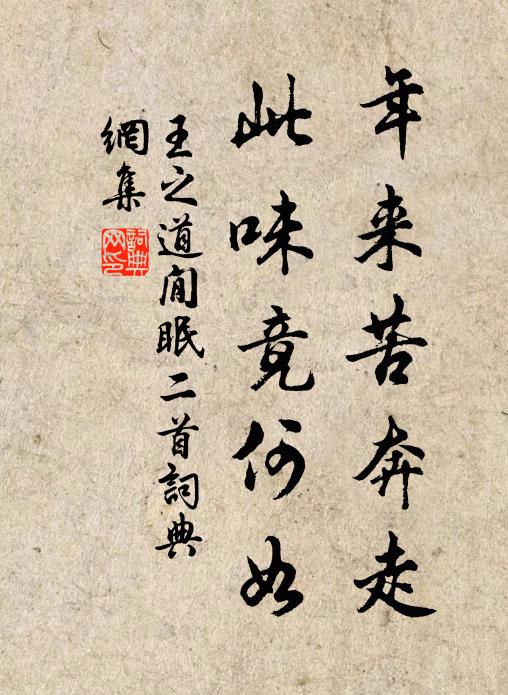 年来苦奔走
此味竟何如
王之道閒眠二首詞典
網集
詞典
网印